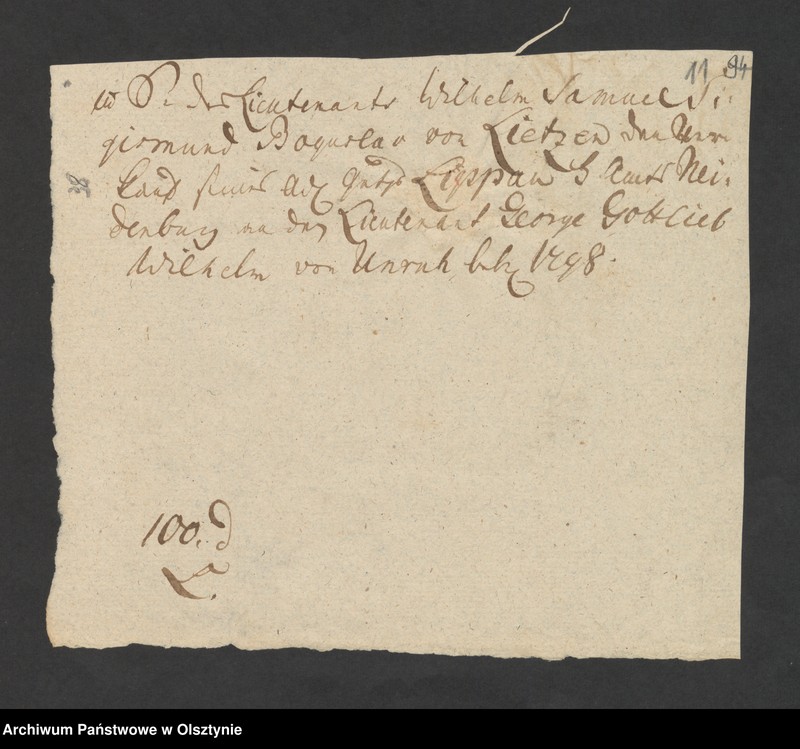 11 94
in S. des Lieutenants Wilhelm Samuel Si-
gismund Boguslav von Lietzen den Ver-
kauf seines Adl Guths Lippau H Amts Nei-
denburg an den Lieutenant George Gottlieb
Wilhelm von Unruh betr 1798.
100. d
L.
Archiwum Państwowe w Olsztynie